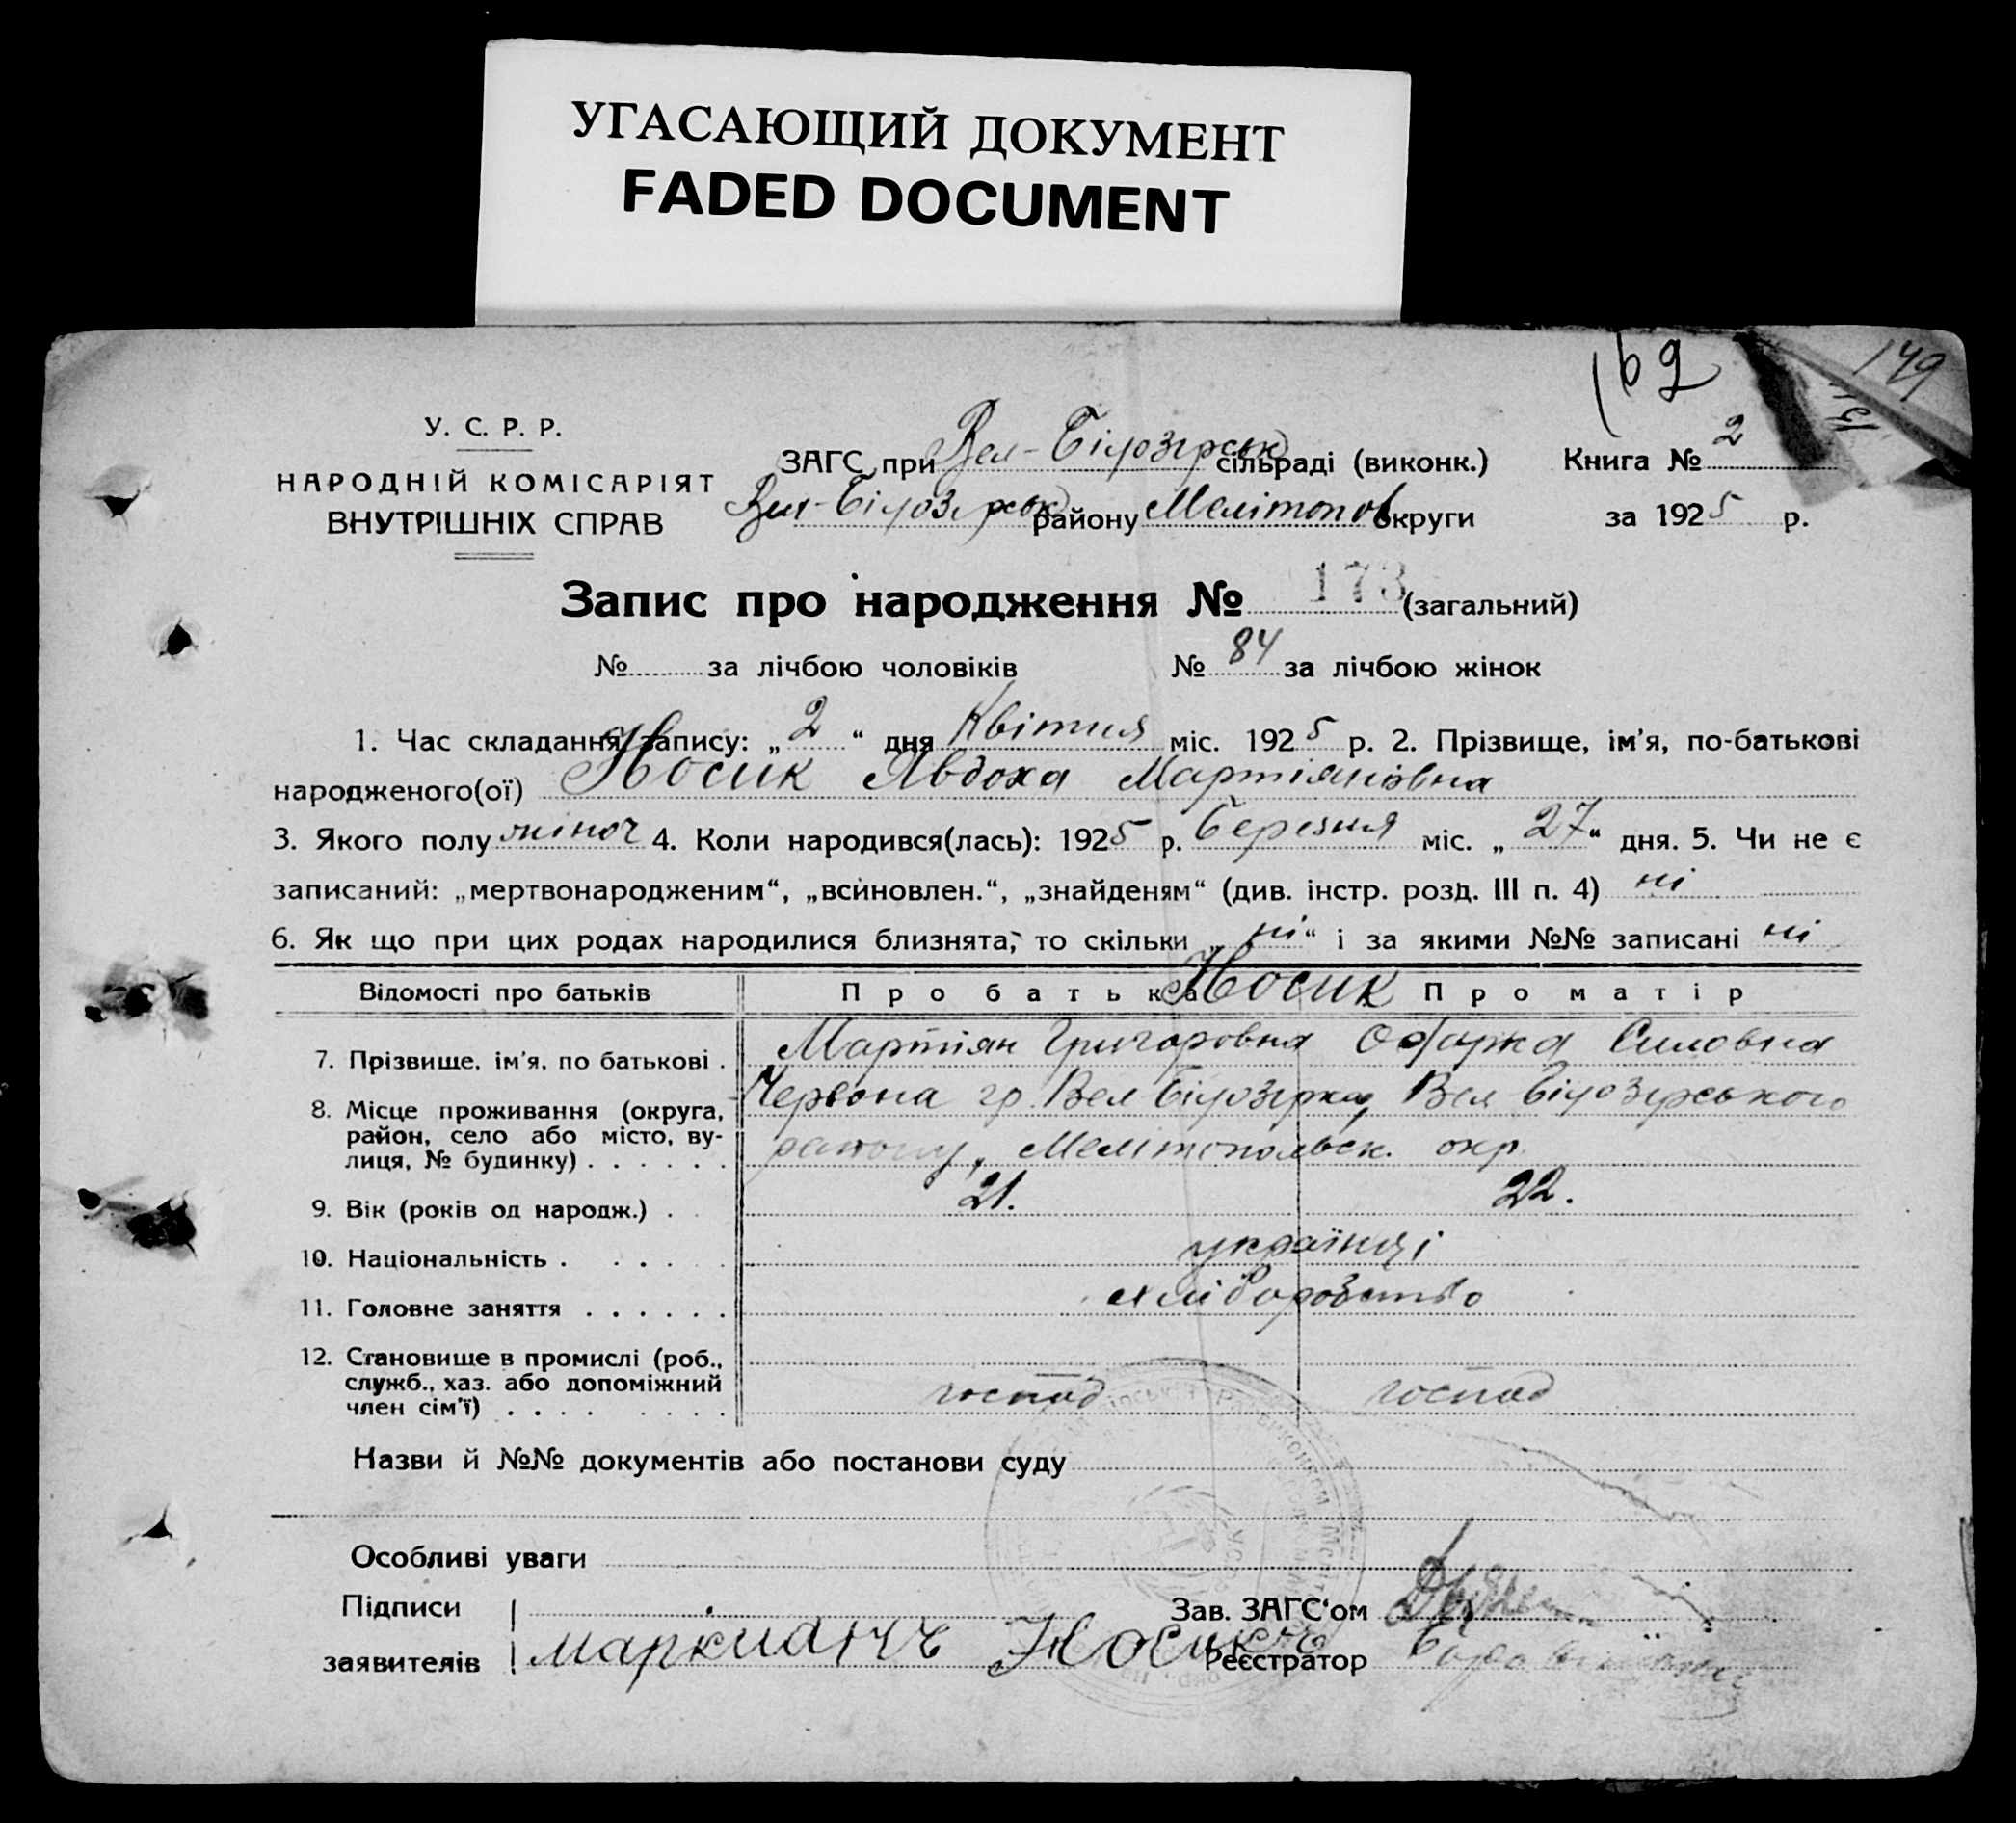 УГАСАЮЩИЙ ДОКУМЕНТ
FADED DOCUMENT
162
149
У. С. Р. Р.
НАРОДНІЙ КОМІСАРІЯТ
ВНУТРІШНІХ СПРАВ
ЗАГС при Вел-Білозерськ сільраді (виконк.)
Книга № 2
Вел-Білозерськ району Мелітопов округи
за 1925 р.
Запис про народження № 173 (загальний)
№ за лічбою чоловіків № 84 за лічбою жінок
1. Час складання запису: „2“ дня Квітня міс. 1925 р. 2. Прізвище, ім’я, по-батькові
народженого(ої) Носик Явдоха Мартіяновна
3. Якого полу жіноч 4. Коли народився(лась): 1925 р. Березня міс. „27“ дня. 5. Чи не є
записаний: „мертвонародженим“, „всиновлен.“, „знайденям“ (див. інстр. розд. III п. 4) ні
6. Як що при цих родах народилися близнята, то скільки „ні“ і за якими №№ записані ні
Відомості про батьків Про батька Носик Про матір
7. Прізвище, ім’я, по батькові . Мартіян Григоровна Силовна
8. Місце проживання (округа, Червона гр. Вел Білозерка, Вел Білозерського
район, село або місто, ву-
лиця, № будинку) . . . . . . району, Мелітопольськ. окр.
9. Вік (років од народж.) . 21. 22.
10. Національність . . . . . українці
11. Головне заняття . . . . . . хліборобство
12. Становище в промислі (роб.,
служб., хаз. або допоміжний
член сім’ї) . . . . . . . . господ господ
Назви й №№ документів або постанови суду
Особливі уваги
Підписи Зав. ЗАГС‘ом
заявителів маркианъ Носикъ Реєстратор